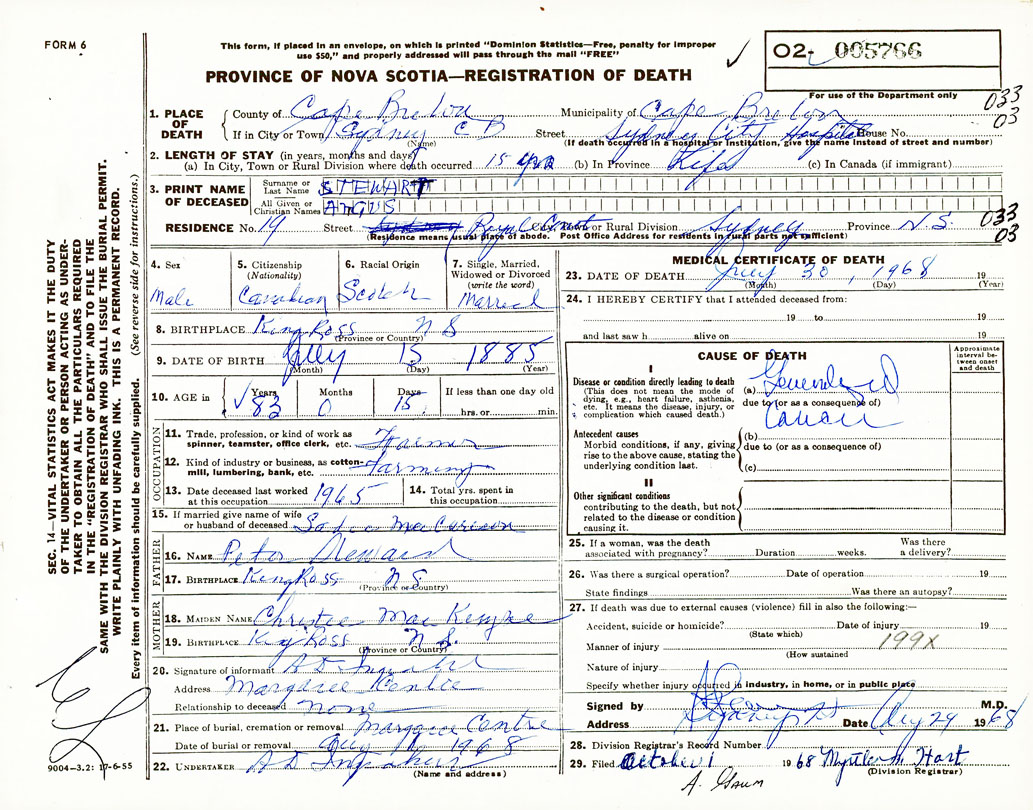 FORM 6
This form, if placed in an envelope, on which is printed "Dominion Statistics—Free, penalty for improper
use $50," and properly addressed will pass through the mail "FREE"
PROVINCE OF NOVA SCOTIA—REGISTRATION OF DEATH
02- 005766
For use of the Department only
033
03
1. PLACE OF DEATH
County of Cape Breton Municipality of Cape Breton
If in City or Town Sydney C B Street Sydney City Hospital House No.
(Name) (If death occurred in a hospital or institution, give the name instead of street and number)
2. LENGTH OF STAY (in years, months and days)
(a) In City, Town or Rural Division where death occurred 15 (b) In Province Life (c) In Canada (if immigrant)
3. PRINT NAME OF DECEASED
Surname or Last Name STEWART
All Given or Christian Names ANGUS
RESIDENCE No. 19 Street Royal Court or Rural Division Sydney Province N.S. 033
03
(Residence means usual place of abode. Post Office Address for residents in rural parts not sufficient)
4. Sex Male
5. Citizenship (Nationality) Canadian
6. Racial Origin Scotch
7. Single, Married, Widowed or Divorced (write the word) Married
8. BIRTHPLACE King Ross N S
(Province or Country)
9. DATE OF BIRTH July 15 1885
(Month) (Day) (Year)
10. AGE in Years 83 Months 0 Days 15 If less than one day old hrs. or min.
OCCUPATION
11. Trade, profession, or kind of work as spinner, teamster, office clerk, etc. Farmer
12. Kind of industry or business, as cotton-mill, lumbering, bank, etc. Farming
13. Date deceased last worked at this occupation 1965
14. Total yrs. spent in this occupation
15. If married give name of wife or husband of deceased
FATHER
16. NAME Peter Steward
17. BIRTHPLACE King Ross N S
(Province or Country)
MOTHER
18. MAIDEN NAME Christie Mac Kenzie
19. BIRTHPLACE King Ross N S
(Province or Country)
20. Signature of informant A D Ingraham
Address Margaree Centre
Relationship to deceased none
21. Place of burial, cremation or removal Margaree Centre
Date of burial or removal 1968
22. UNDERTAKER A D Ingraham
(Name and address)
MEDICAL CERTIFICATE OF DEATH
23. DATE OF DEATH July 30, 1968 19
(Month) (Day) (Year)
24. I HEREBY CERTIFY that I attended deceased from:
19 to 19
and last saw h alive on 19
CAUSE OF DEATH
Approximate interval between onset and death
I
Disease or condition directly leading to death
(This does not mean the mode of dying, e.g., heart failure, asthenia, etc. It means the disease, injury, or complication which caused death.)
(a) Generalized
due to (or as a consequence of)
Cancer
Antecedent causes
Morbid conditions, if any, giving rise to the above cause, stating the underlying condition last.
(b)
due to (or as a consequence of)
(c)
II
Other significant conditions
contributing to the death, but not related to the disease or condition causing it.
25. If a woman, was the death associated with pregnancy? Duration weeks. Was there a delivery?
26. Was there a surgical operation? Date of operation 19
State findings Was there an autopsy?
27. If death was due to external causes (violence) fill in also the following:—
Accident, suicide or homicide? Date of injury 19
(State which)
Manner of injury 199X
(How sustained
Nature of injury
Specify whether injury occurred in industry, in home, or in public place
Signed by M.D.
Address Sydney Date Aug 29 1968
28. Division Registrar's Record Number
29. Filed October 1 1968 Myrtle Hart
(Division Registrar)
A. Gaum
SEC. 14—VITAL STATISTICS ACT MAKES IT THE DUTY
OF THE UNDERTAKER OR PERSON ACTING AS UNDER-
TAKER TO OBTAIN ALL THE PARTICULARS REQUIRED
IN THE "REGISTRATION OF DEATH" AND TO FILE THE
SAME WITH THE DIVISION REGISTRAR WHO SHALL ISSUE THE BURIAL PERMIT.
WRITE PLAINLY WITH UNFADING INK. THIS IS A PERMANENT RECORD.
Every item of information should be carefully supplied. (See reverse side for instructions.)
9004—3.2: 17-6-55